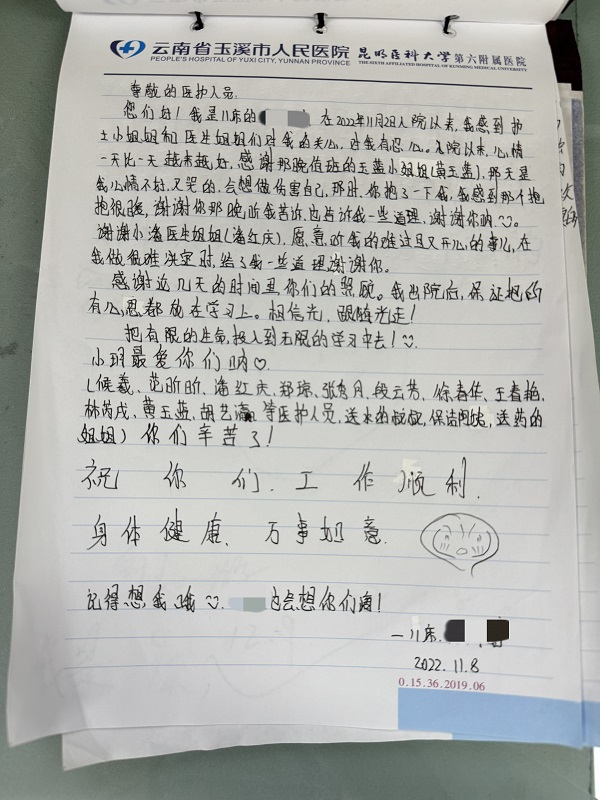 云南省玉溪市人民医院 昆明医科大学第六附属医院
PEOPLE'S HOSPITAL OF YUXI CITY, YUNNAN PROVINCE THE SIXTH AFFILIATED HOSPITAL OF KUNMING MEDICAL UNIVERSITY
尊敬的医护人员:
您们好!我是川床的 在2022年11月2日入院以来,我感到护
士小姐姐和医生姐姐们对我的关心,对我有忍心。入院以来,心情
一天比一天越来越好,感谢那晚值班的玉蓝小姐姐(黄玉蓝),那天是
我心情不好,又哭的,会想做伤害自己,那时,你抱了一下我,我感到那个抱
抱很暖,谢谢你那晚听我苦诉,也告诉我一些道理,谢谢你呐。
谢谢小潘医生姐姐(潘红庆),愿意听我的难过且又开心的事儿,在
我做很难决定时,给了我一些道理谢谢你。
感谢这几天的时间里你们的照顾。我出院后,保证把所
有心思都放在学习上。相信光,跟随光走!
把有限的生命,投入到无限的学习中去!
小玥最爱你们呐♡.
(候羲、范昕昕、潘红庆、郑琼、张秀月、段云芳、徐春华、王春艳,
林芮戌、黄玉蓝、胡艺 等医护人员,送水的叔叔,保洁阿姨,送药的
姐姐)你们辛苦了!
祝你们.工作顺利.
身体健康.万事如意.
记得想我哦 也会想你们滴!
一川床.
2022.11.8
0.15.36.2019.06